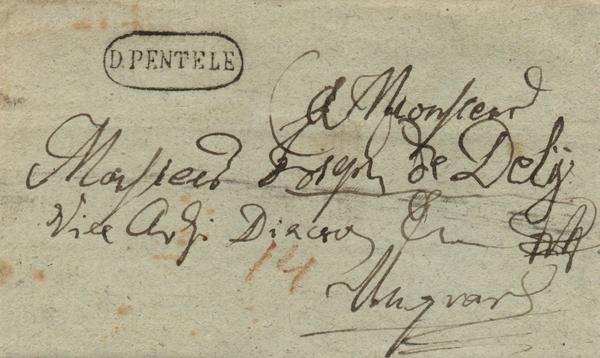 D. PENTELE
A Monsieur
Monsieur Joseph de Delÿ
Vice Archi Diacre
14
Ungvar